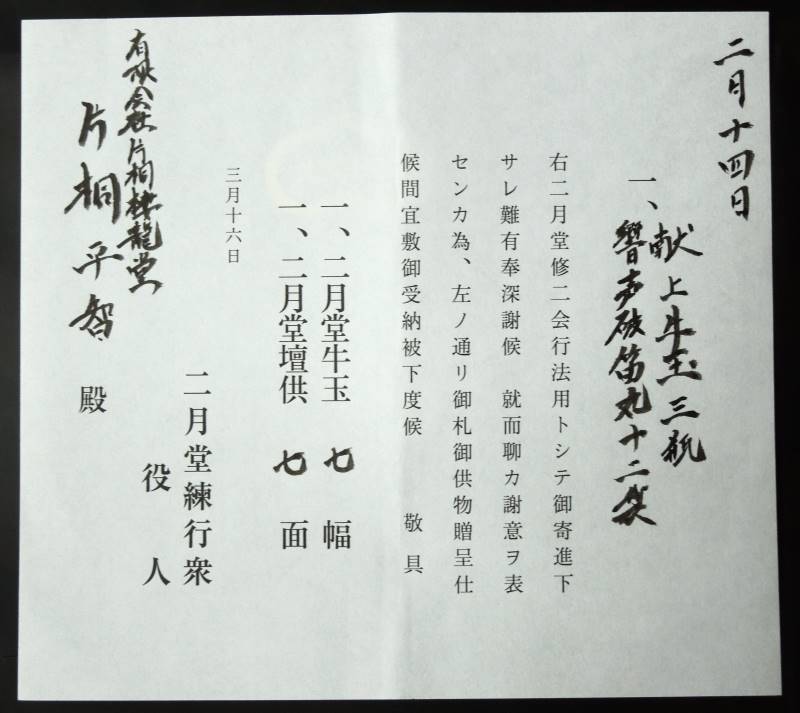 二月十四日
献上牛玉三瓶
一、響声破笛丸十二袋
右二月堂修二会行法用トシテ御寄進下
サレ難有奉深謝候 就而聊カ謝意ヲ表
センカ為、左ノ通リ御札御供物贈呈仕
候間宜敷御受納被下度候 敬具
一、二月堂牛玉 七 幅
一、二月堂壇供 七 面
三月十六日
二月堂練行衆
役人
有限会社片桐棲龍堂
片桐平智 殿